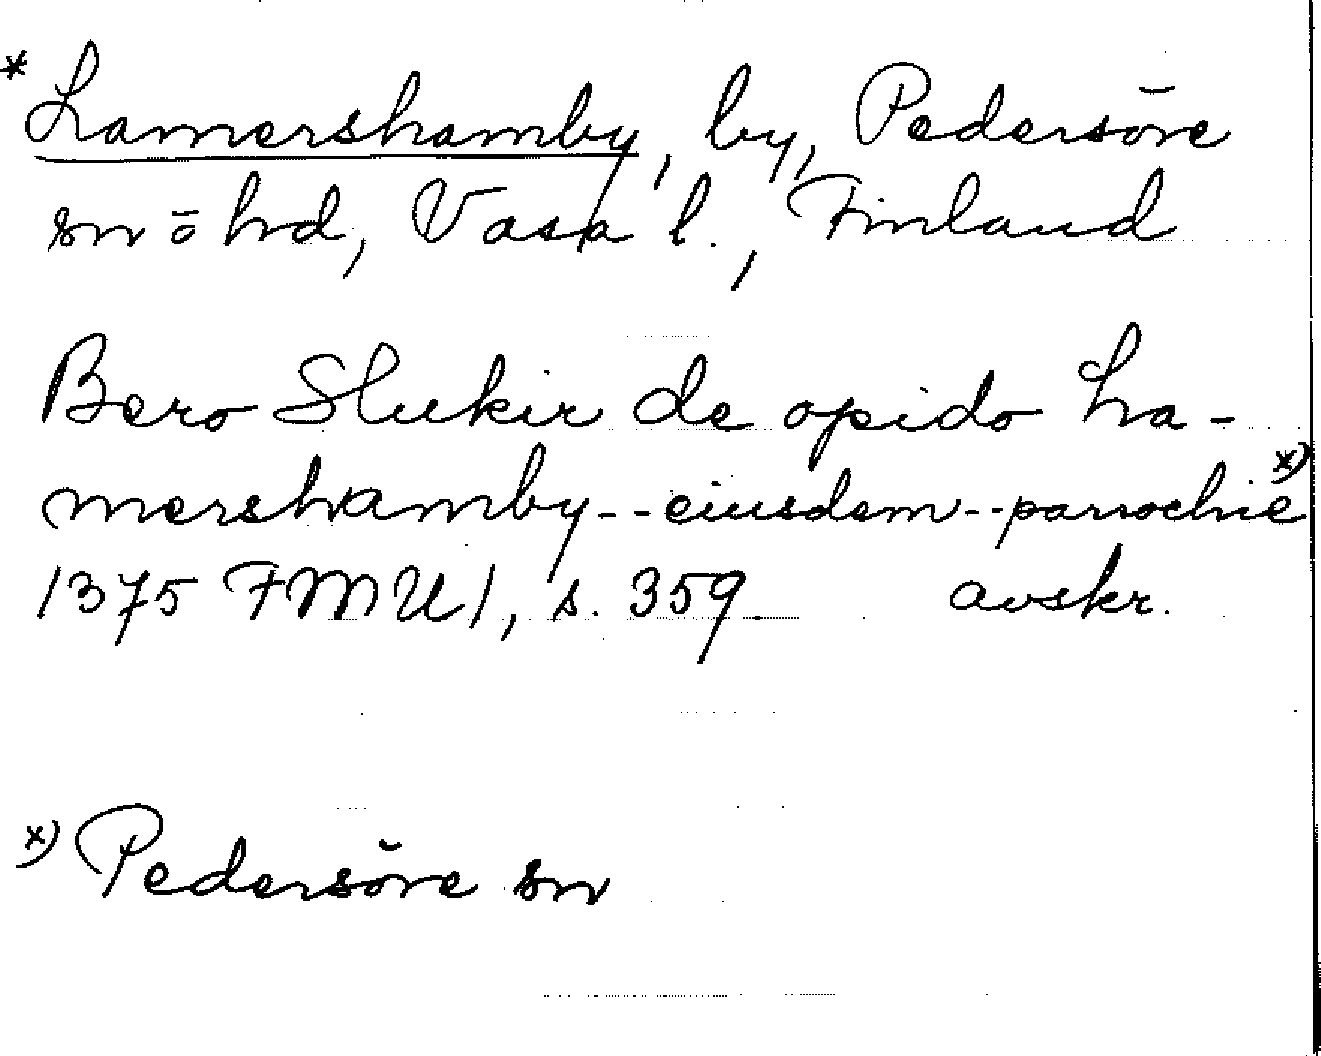 * Lamershamby, by, Pedersöre
sn ō hd, Vasa l., Finland
Bero Slukir de opido La-
mershamby - - eiusdem - - parrochie x)
1375 FMU 1, s. 359 avskr.
x) Pedersöre sn